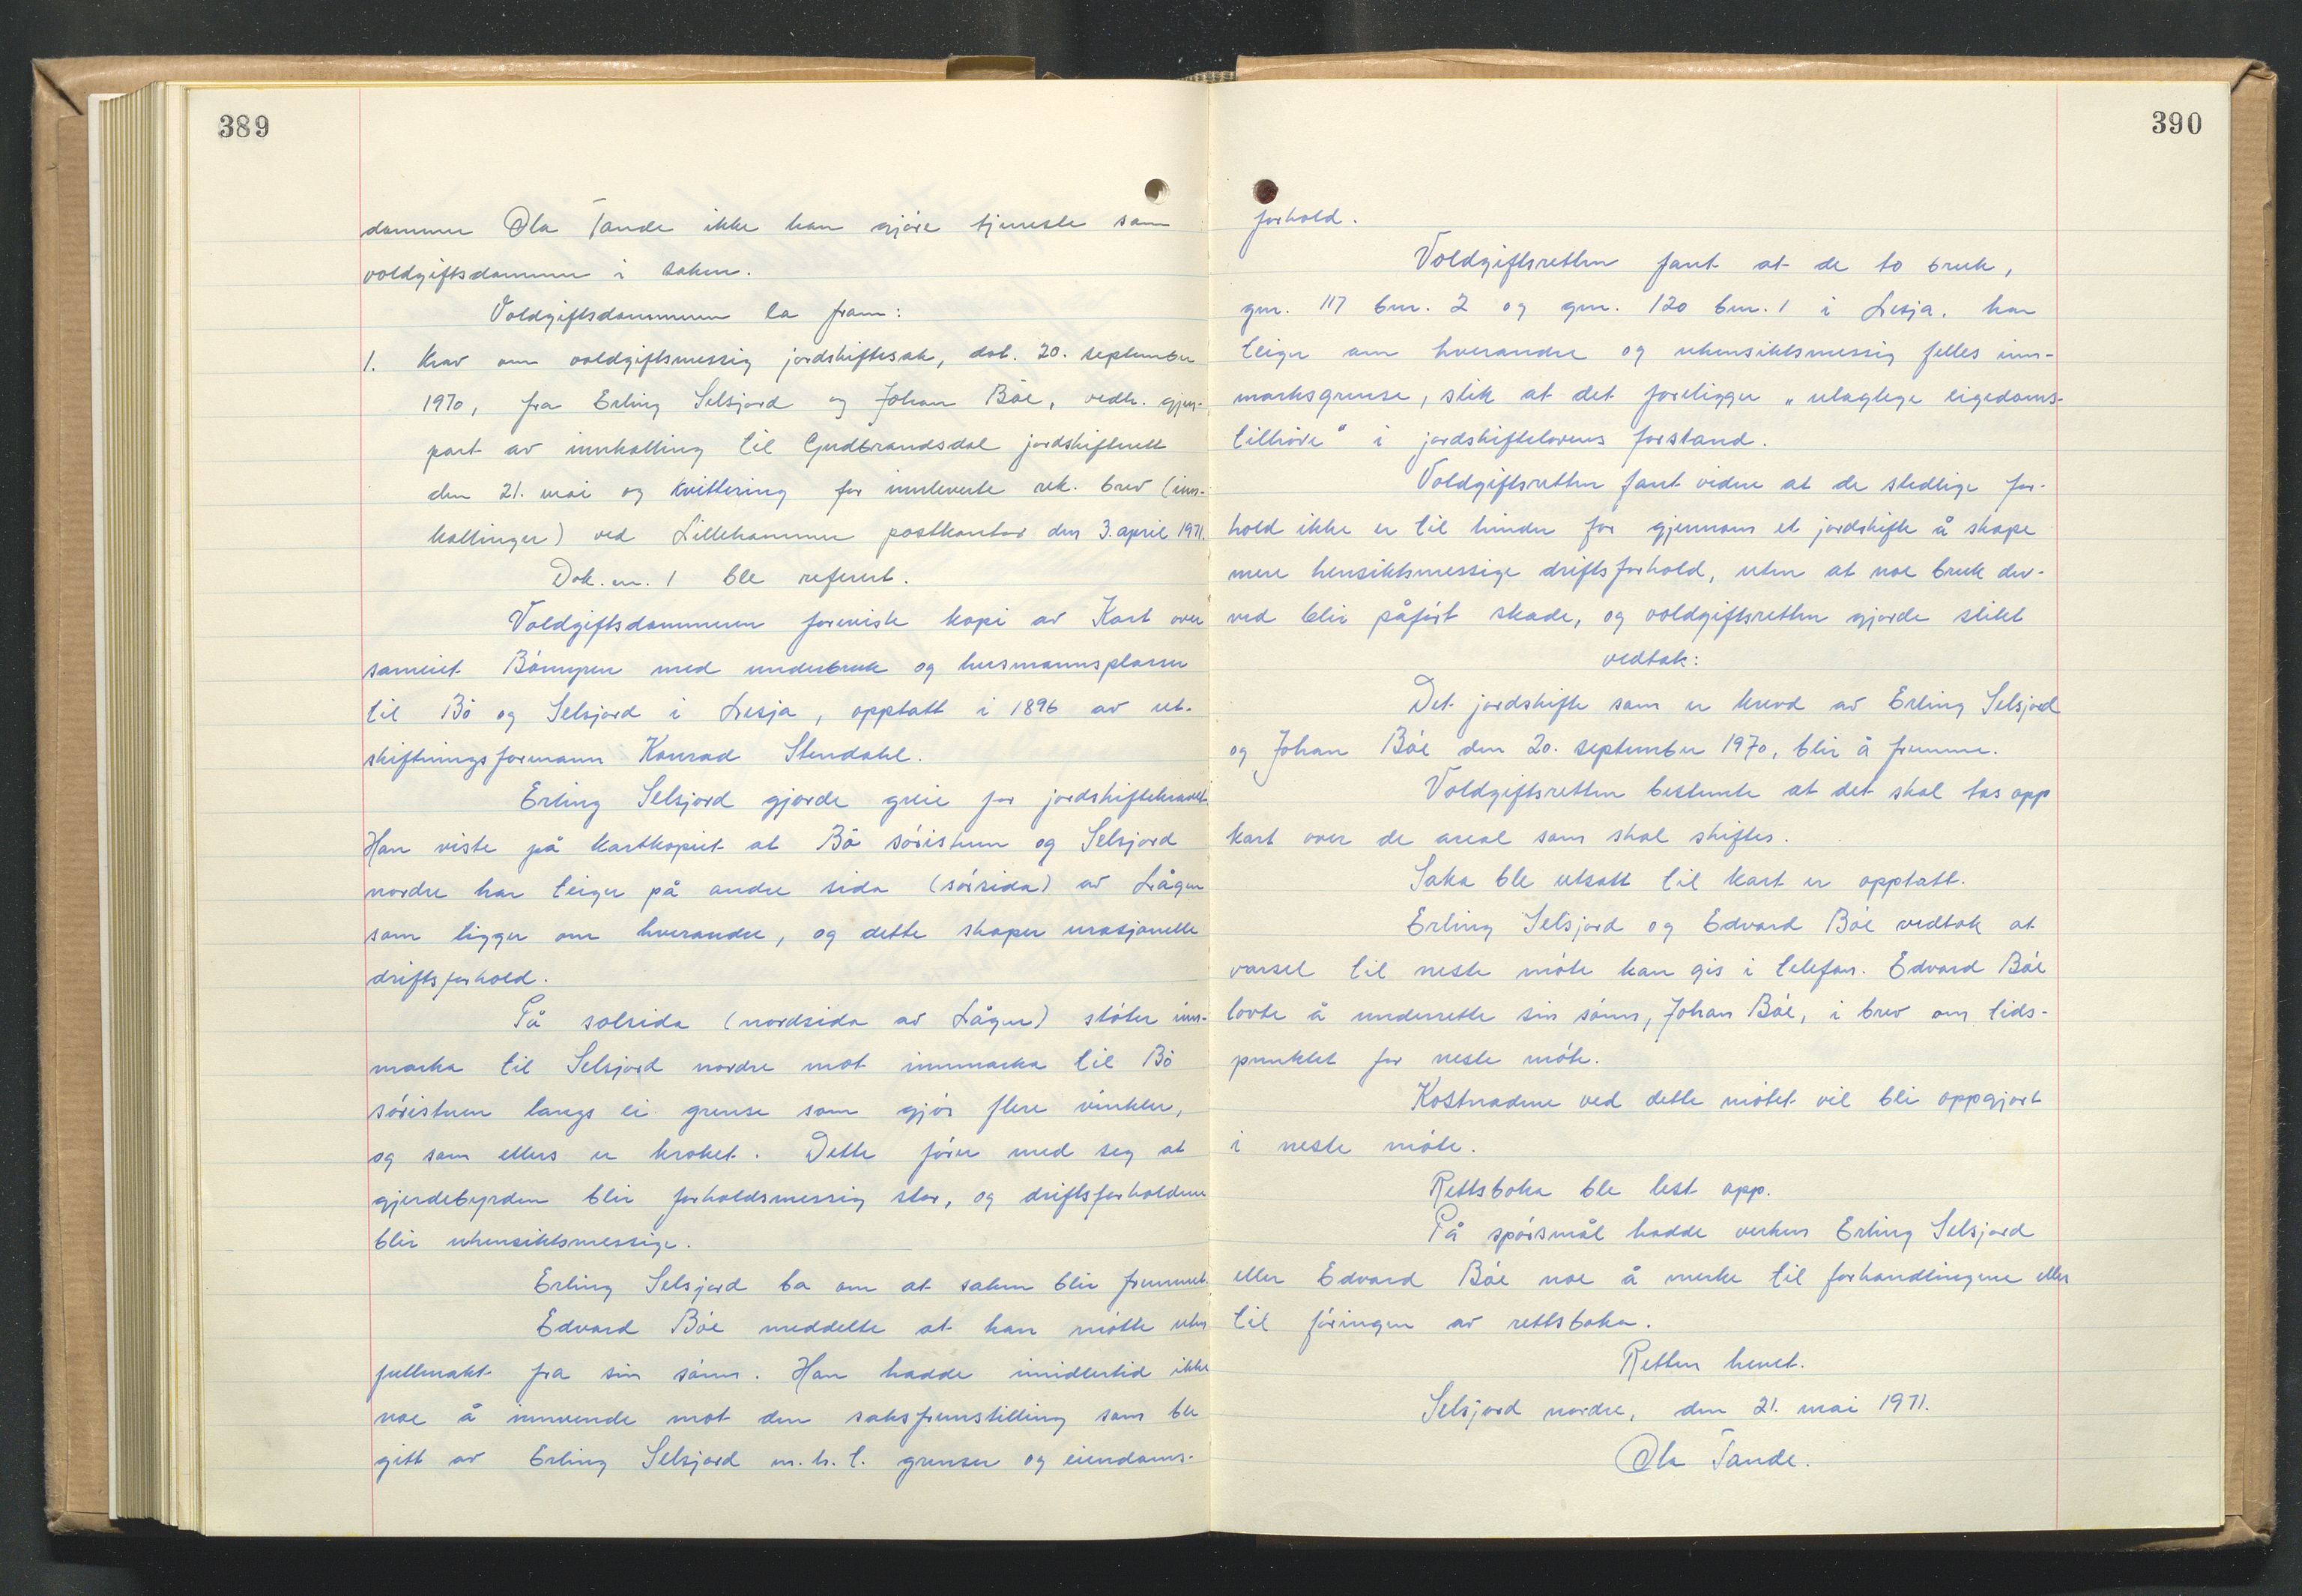 389
dommer Ola Tande ikke kan gjøre tjeneste som
voldgiftsdommer i saken.
Voldgiftsdommeren la fram:
1. Krav om voldgiftsmessig jordskiftesak, dat. 20. september
1970, fra Erling Selsjord og Johan Bøe, vedh. gjen-
part av innkalling til Gudbrandsdal jordskifterett
den 21. mai og kvittering for innleverte rek. brev (inn-
kallinger) ved Lillehammer postkontor den 3. april 1971.
Dok. nr. 1 ble referert.
Voldgiftsdommeren foreviste kopi av Kart over
sameiet Bømyren med underbruk og husmannsplasser
til Bø og Selsjord i Lesja, opptatt i 1896 av ut-
skiftningsformann Konrad Stendahl.
Erling Selsjord gjorde greie for jordskiftekravet.
Han viste på kartkopiet at Bø søristuen og Selsjord
nordre har teiger på andre sida (sørsida) av Lågen
som ligger om hverandre, og dette skaper urasjonelle
driftsforhold.
På solsida (nordsida av Lågen) støter inn-
marka til Selsjord nordre mot innmarka til Bø
søristuen langs ei grense som gjør flere vinkler,
og som ellers er kroket. Dette fører med seg at
gjerdebyrden blir forholdsmessig stor, og driftsforholdene
blir uhensiktsmessige.
Erling Selsjord ba om at saken blir fremmet.
Edvard Bøe meddelte at han møtte uten
fullmakt fra sin sønn. Han hadde imidlertid ikke
noe å innvende mot den saksfremstilling som ble
gitt av Erling Selsjord m.h.t. grenser og eiendoms-
390
forhold.
Voldgiftsretten fant at de to bruk,
gnr. 117 bnr. 2 og gnr. 120 bnr. 1 i Lesja, har
teiger om hverandre og uhensiktsmessig felles inn-
marksgrense, slik at det foreligger „ulaglege eigedoms-
tilhøve" i jordskiftelovens forstand.
Voldgiftsretten fant videre at de stedlige for-
hold ikke er til hinder for gjennom et jordskifte å skape
mere hensiktsmessige driftsforhold, uten at noe bruk der-
ved blir påført skade, og voldgiftsretten gjorde slikt
vedtak:
Det jordskifte som er krevd av Erling Selsjord
og Johan Bøe den 20. september 1970, blir å fremme.
Voldgiftsretten bestemte at det skal tas opp
kart over de areal som skal skiftes.
Saka ble utsatt til kart er opptatt.
Erling Selsjord og Edvard Bøe vedtok at
varsel til neste møte kan gis i telefon. Edvard Bøe
lovte å underrette sin sønn, Johan Bøe, i brev om tids-
punktet for neste møte.
Kostnadene ved dette møtet vil bli oppgjort
i neste møte.
Rettsboka ble lest opp.
På spørsmål hadde verken Erling Selsjord
eller Edvard Bøe noe å merke til forhandlingene eller
til føringen av rettsboka.
Retten hevet.
Selsjord nordre, den 21. mai 1971.
Ola Tande.